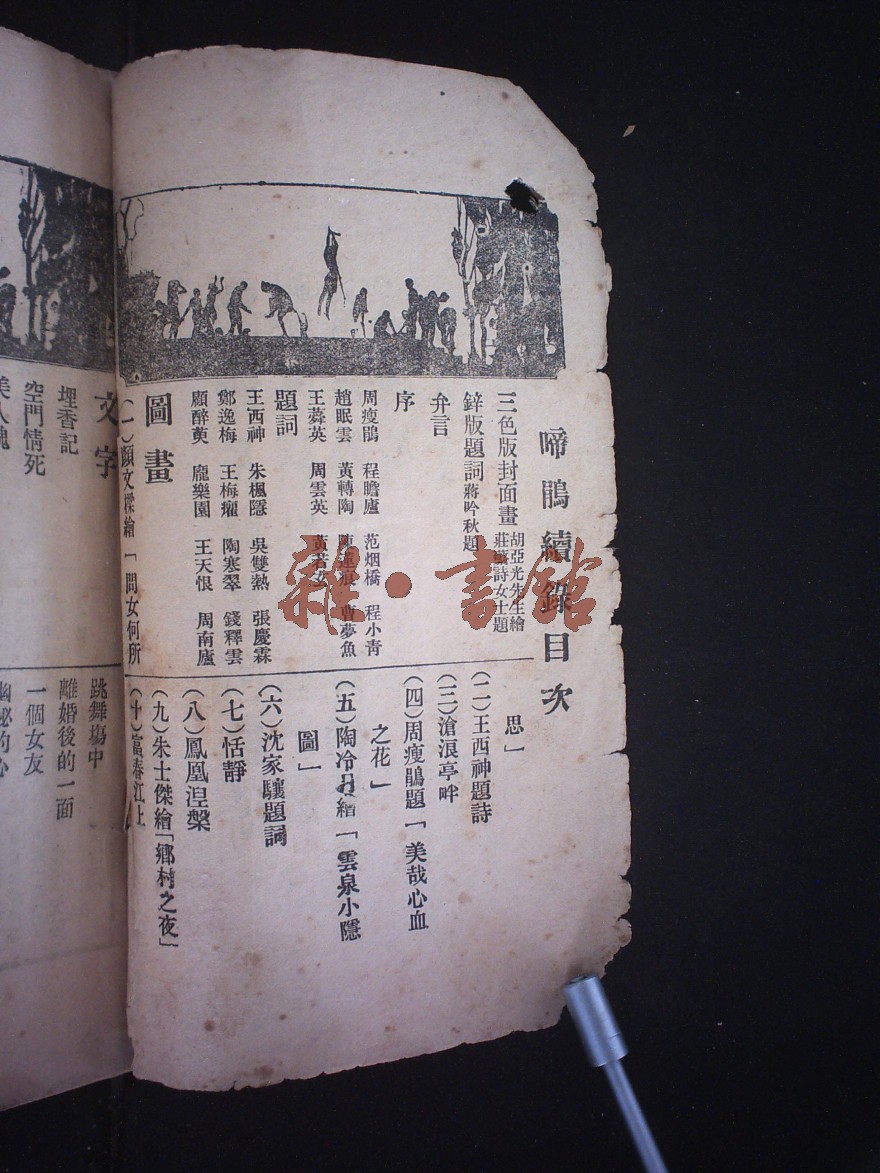 啼鵑續錄目次
三色版封面畫 胡亞光先生繪
莊 詩女士題
鋅版題詞 蔣吟秋題
弁言
序
周瘦鵑 程瞻廬 范烟橋 程小青
趙眠雲 黃轉陶 陳蓮痕 曹夢魚
王蕣英 周雲英 黃若玄
題詞
王西神 朱楓隱 吳雙熱 張慶霖
鄭逸梅 王梅癯 陶寒翠 錢釋雲
顧醉萸 龐樂園 王天恨 周南廬
圖畫
(一)顏文樑繪「問女何所
思」
(二)王西神題詩
(三)滄浪亭畔
(四)周瘦鵑題「美哉心血
之花」
(五)陶冷月繪「雲泉小隱
圖」
(六)沈家驤題詞
(七)恬靜
(八)鳳凰湼槃
(九)朱士傑繪「鄉村之夜」
(十)富春江上
文字
埋香記
空門情死
美人魂
跳舞塲中
離婚後的一面
一個女友
幽秘的心
雜·書館